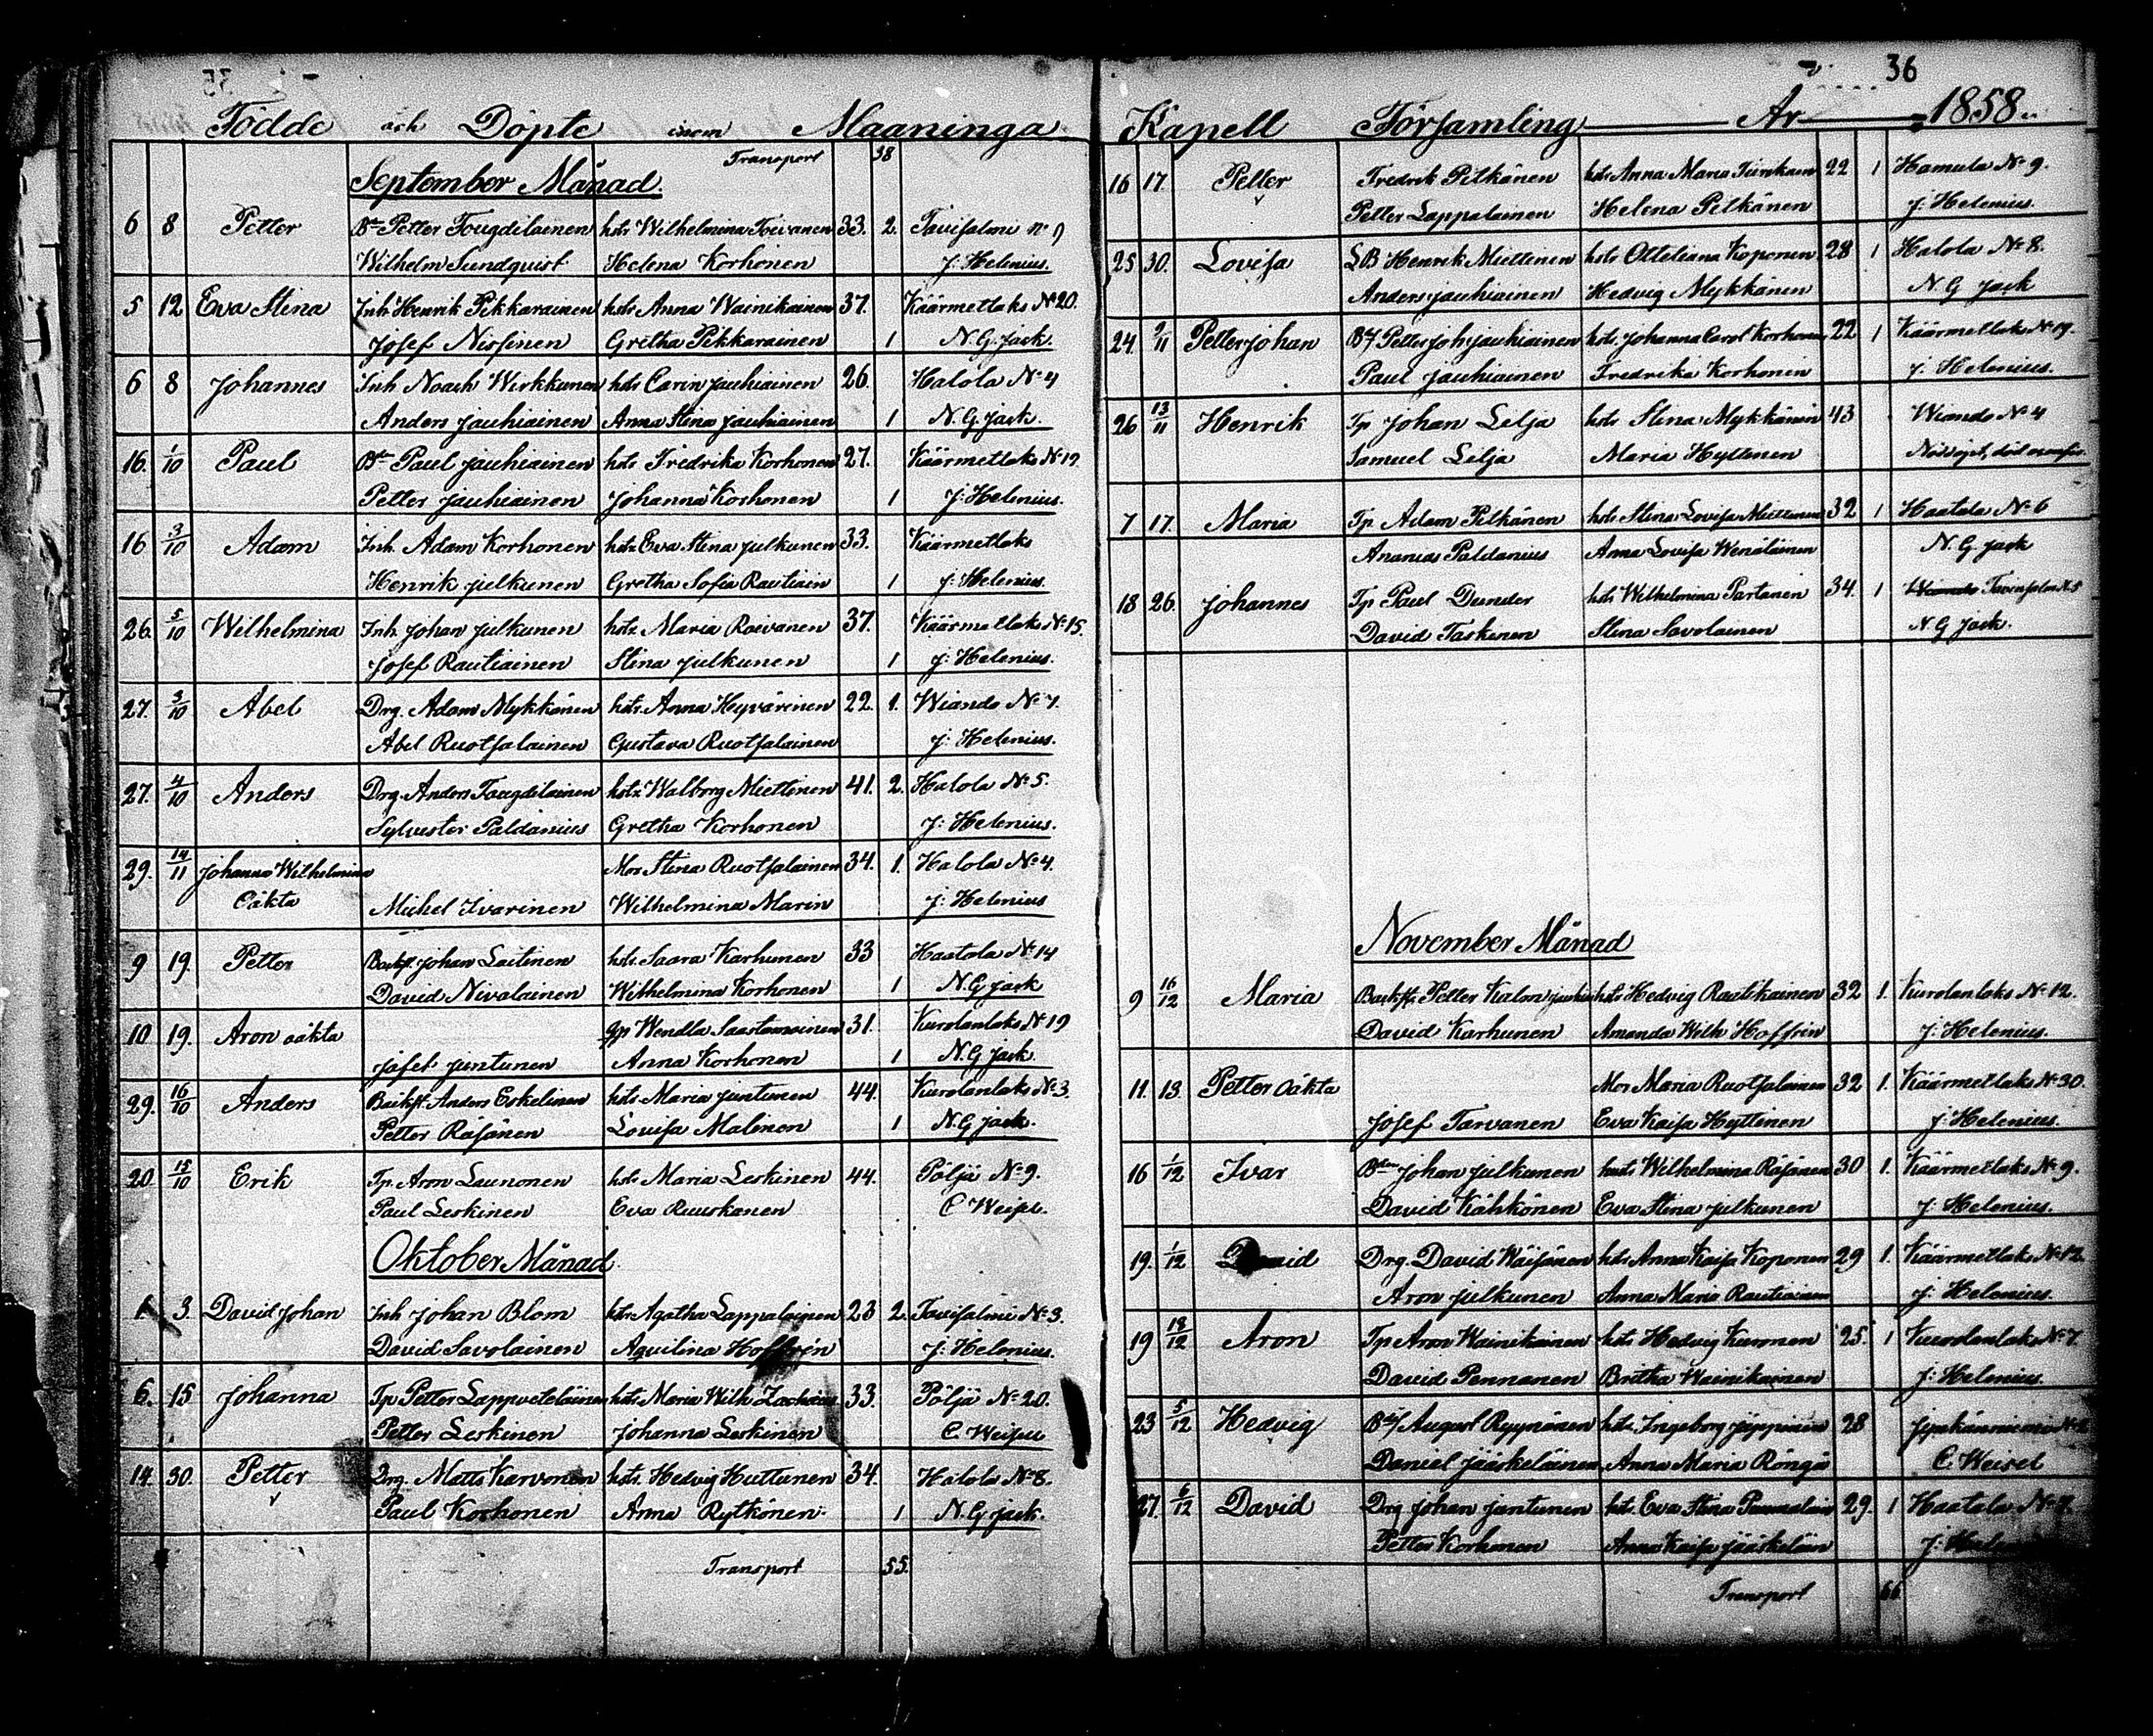 36
Födde och Döpte inom Maaninga
Transport 38
September Månad.
6 8 Petter Bn Petter Tougdilainen hstr Wilhelmina Toivanen 33. 2. Tavisalmi No 9
Wilhelm Sundqvist Helena Korhonen J: Helenius.
5 12 Eva Stina Inh Henrik Pikkarainen hstr Anna Wainikainen 37. Käärmetlaks No 20.
Josef Nissinen Gretha Pikkarainen 1 N. G. Jack.
6 8 Johannes Inh Noach Wirkkunen hstr Carin Jauhiainen 26. Halola No 4
Anders Jauhiainen Anna Stina Jauhiainen 1 N. G. Jack.
16. 1/10 Paul Bn Paul Jauhiainen hstr Fredrika Korhonen 27. Käärmetlaks No 19.
Petter Jauhiainen Johanna Korhonen 1 J: Helenius.
16 3/10 Adam Inh. Adam Korhonen hstr Eva Stina Julkunen 33. Käärmetlaks
Henrik Julkunen Gretha Sofia Rautiain 1 J: Helenius.
26. 5/10 Wilhelmina Inh Johan Julkunen hstr Maria Roivanen 37. Käärmetlaks No 15.
Josef Rautiainen Stina Julkunen 1 J: Helenius.
27. 3/10 Abel Drg. Adam Mykkänen hstr. Anna Hyvärinen 22. 1. Wiando No 7.
Abel Ruotsalainen Gustava Ruotsalainen J: Helenius.
27. 4/10 Anders Drg. Anders Tougdilainen hstr Walborg Miettinen 41. 2. Halola No 5.
Sylvester Paldanius Gretha Korhonen J: Helenius.
29. 14/11 Johanna Wilhelmina Mor Stina Ruotsalainen 34. 1. Halola No 4.
Oäkta Michel Ivarinen Wilhelmina Marin J: Helenius
9 19. Petter Backst. Johan Laitinen hstr. Saara Karhunen 33 Haatala No 14
David Nivalainen Wilhelmina Korhonen 1 N. G Jack
10 19. Aron oäkta gp Wendla Saastamoinen 31. Kurolanlaks No 19
Jafet Juntunen Anna Korhonen 1 N. G Jack.
29. 16/10 Anders Backst. Anders Eskelinen hstr Maria Juntunen 44. Kurolanlaks No 3.
Petter Räsänen Lovisa Malinen 1 N. G Jack.
20 15/10 Erik Tp. Aron Launonen hstr Maria Leskinen 44. Pöljä No 9.
Paul Leskinen Eva Ruuskanen C Weisel.
Oktober Månad.
1. 3. David Johan Inh Johan Blom hstr Agatha Lappalainen 23 2. Tavisalmi No 3.
David Savolainen Aquilina Hoffrén J: Helenius.
6. 15 Johanna Tp Petter Lappveteläinen hstr Maria Wilh 33. Pöljä No 20.
Petter Leskinen Johanna Leskinen C. Weisel
14. 30. Petter Drg. Matts Karvonen hstr. Hedvig Huttunen 34. Halola No 8.
Paul Korhonen Anna Rytkönen. 1 N. G Jack.
Transport 55.
Kapell Församling År 1858.
16 17. Petter Fredrik Pitkänen hstr Anna Maria 22 1 Hamula No 9.
Petter Lappalainen Helena Pitkänen J: Helenius.
25 30. Lovisa LB Henrik Miettinen hstr Otteliana Koponen 28 1 Halola No 8.
Anders Jauhiainen Hedvig Mykkänen N. G Jack
24. 9/11 Petter Johan Petter Joh Jauhiainen hstr. Johanna Carol Korhonen 22 1 Käärmetlaks No 19.
Paul Jauhiainen Fredrika Korhonen J: Helenius.
26 13/11 Henrik Tp Johan Lilja hstr Stina Mykkänen 43 Wiando No 4
Samuel Lilja Maria Hyttinen
7 17. Maria Tp Adam Pitkänen hstr Stina Lovisa Miettinen 32 1 Haatala No 6
Ananias Paldanius Anna Lovisa Wenäläinen N. G. Jack
18 26. Johannes Tp Paul Dunder hstr Wilhelmina Partanen 34. 1 Wiando Tavisalmi No 5
David Taskinen Stina Savolainen N. G Jack.
November Månad
9 16/12 Maria Backst. Petter hstr Hedvig Rautikainen 32 1. Kurolanlaks No 12.
David Karhunen Amanda Wilh Hoffrén J: Helenius.
11. 13. Petter Oäkta Mor Maria Ruotsalainen 32 1. Käärmetlaks No 30.
Josef Tarvanen Eva Kaisa Hyttinen J: Helenius.
16 1/12 Ivar Bdn Johan Julkunen hustr Wilhelmina Räsänen 30 1. Käärmetlaks No 9.
David Kähkönen Eva Stina Julkunen J: Helenius.
19. 1/12 David Drg. David Wäisänen hstr Anna Kaisa Koponen 29 1. Käärmetlaks No 12
Aron Julkunen Anna Maria Rautiainen J: Helenius.
19 18/12 Aron Tp Aron Wainikainen hstr Hedvig Kurmen 25. 1 Kurolanlaks No 7.
David Pennanen Britha Wainikainen J: Helenius.
23 5/12 Hedvig August Ryynänen hstr Ingeborg 28
Daniel Jääskeläinen Anna Maria Röngä C. Weisel
27. 6/12 David Drg Johan Juntunen hstr. Eva Stina 29. 1 Haatala No 7.
Petter Korhonen Anna Kaisa Jääskeläin J: Helenius
Transport 66